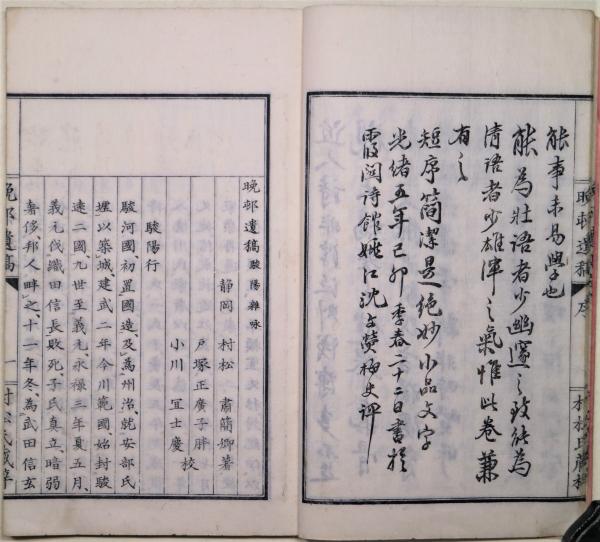 能事未易學也
能為壯語者少幽邃之致能為
清語者少雄渾之氣惟此卷兼
有之
短序簡潔是絕妙小品文字
光緒五年己卯季春二十二日書於
霞閣詩館姚江沈文熒梅史評
晚邨遺稿 序
村松氏藏梓
晚邨遺稿 駿陽雜詠
靜岡 村松 肅簡卿著
戶塚正廣子胖
小川 宜士慶 校
駿陽行
駿河國、初置國造、及為州治、就安部氏
埋以築城建武二年今川範國始封駿
遠二國九世至義元、永祿三年夏五月、
義元伐織田信長敗死、子氏真立、暗弱
奢侈邦人畔之、十一年冬、為武田信玄
晚邨遺稿
一
村松氏藏梓